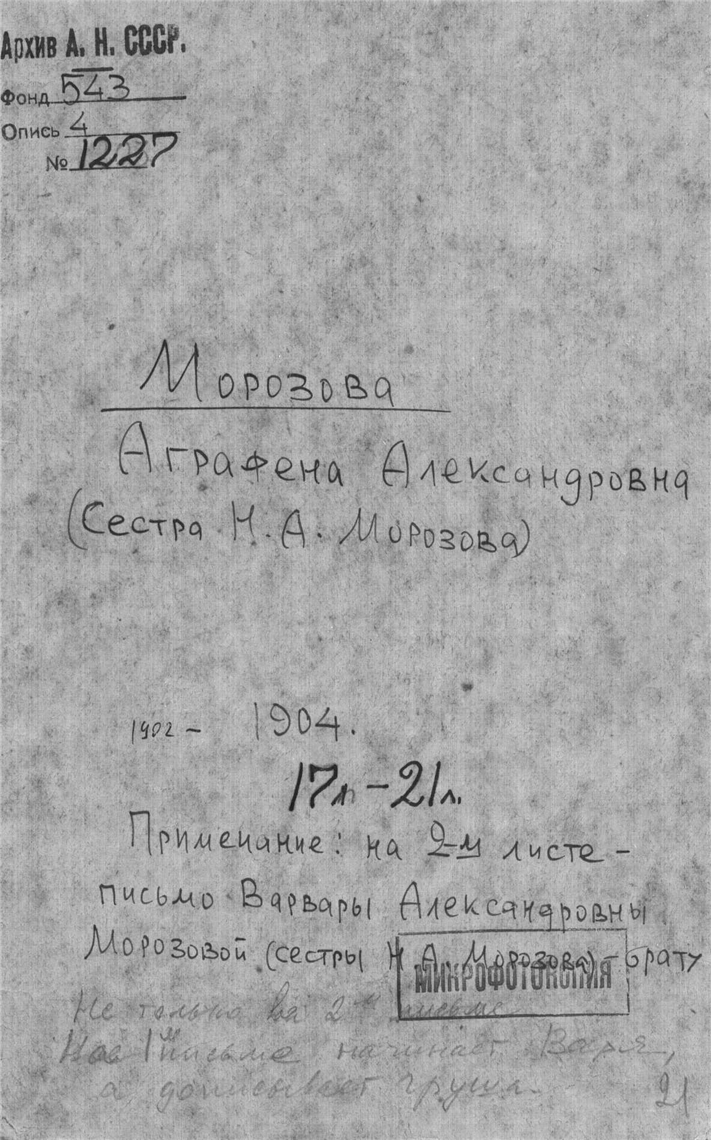 Архив А. Н. СССР.
Фонд 543
Опись 4
№ 1227
Морозова
Аграфена Александровна
(Сестра Н. А. Морозова)
1902 – 1904.
17л – 21л.
Примечание: на 2-м листе –
письмо Варвары Александровны
Морозовой (сестры Н. А. Морозова) – брату
МИКРОФОТОКОПИЯ
Не только на 2-м письме
1 письмо начинает Варя,
а дописывает Груша.
21